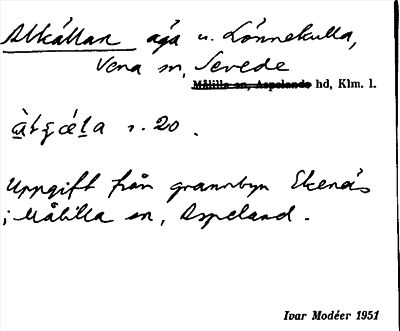 Allkällan äga u. Lönnekulla,
Vena sn, Sevede
Målilla sn, Aspelands hd, Klm. l.
s. 20.
Uppgift från grannbyn Ekenäs
i Målilla sn, Aspeland.
Ivar Modéer 1951